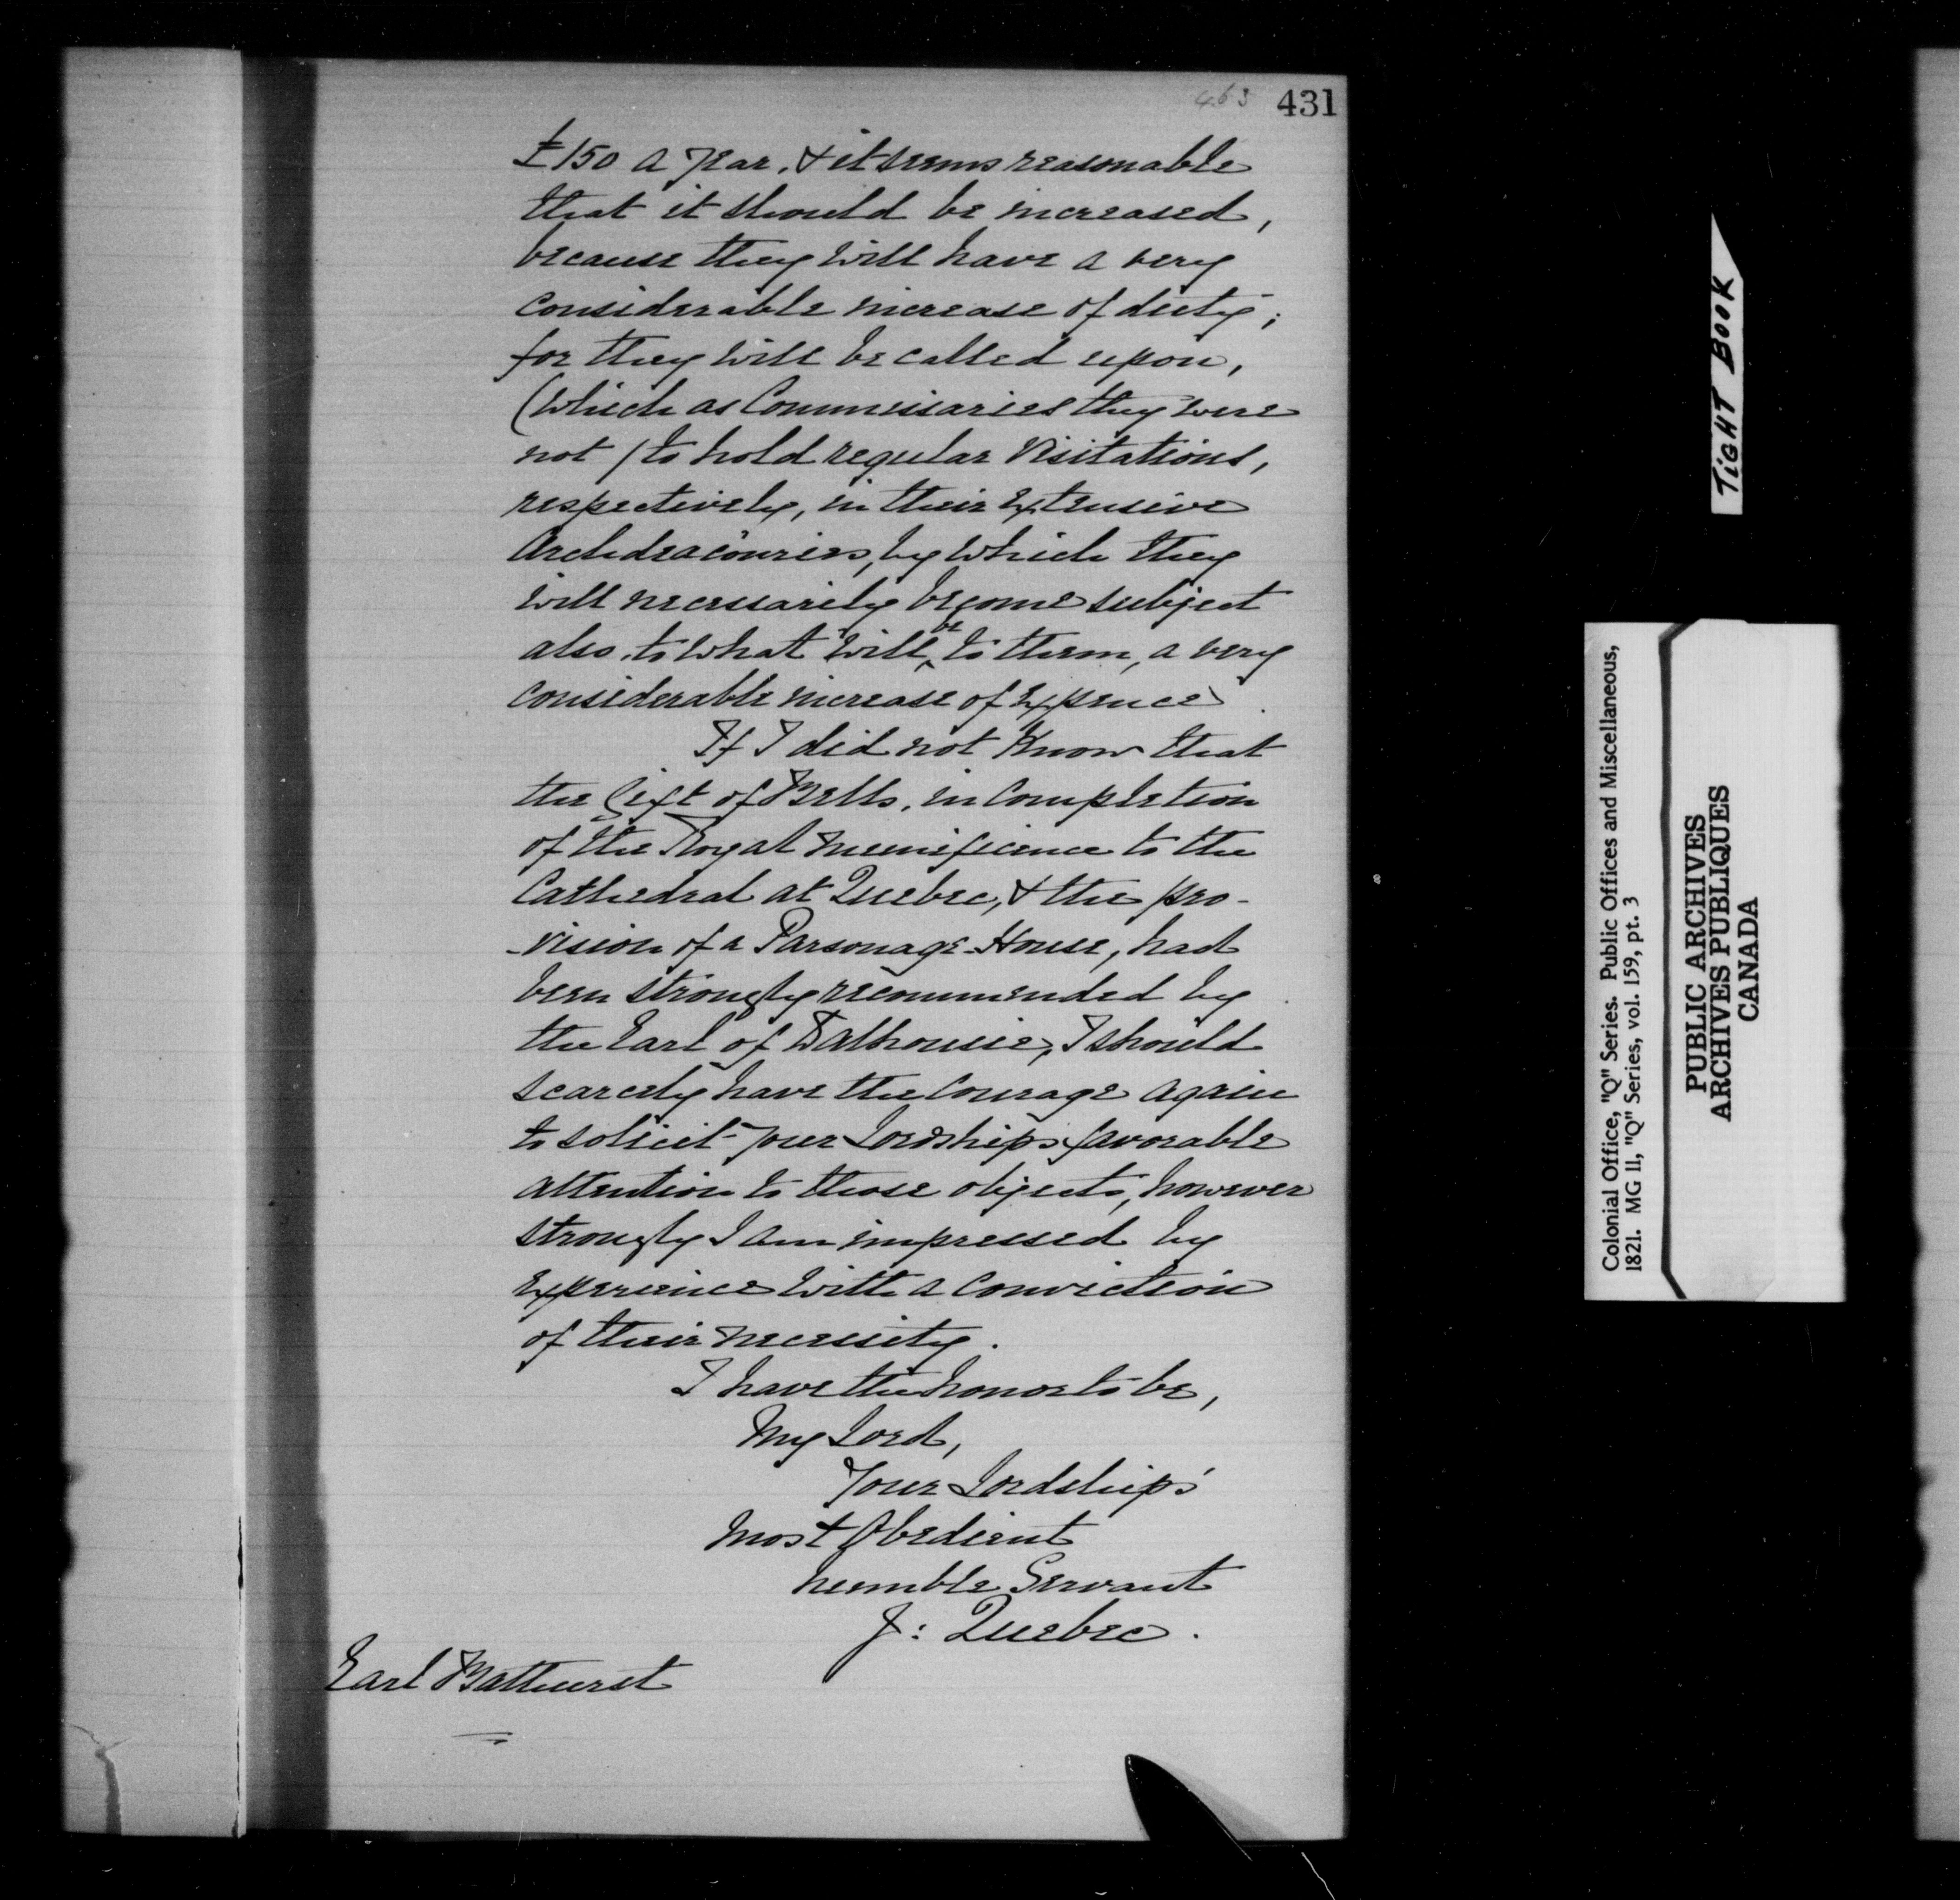 463 431
£150 a year, & it seems reasonable
that it should be increased,
because they will have a very
considerable increase of duty;
for they will be called upon,
(which as Commissaries they were
not) to hold regular Visitations,
respectively, in their extensive
Archdeaconries, by which they
will necessarily become subject
also, to what will be to them, a very
considerable increase of expence.
If I did not know that
the Gift of Bells, in completion
of the Royal munificence to the
Cathedral at Quebec, & the pro-
-vision of a Parsonage-House, had
been strongly recommended by
the Earl of Dalhousie, I should
scarcely have the courage again
to solicit your Lordship's favorable
attention to those objects, however
strongly I am impressed by
experience with a conviction
of their necessity.
I have the honor to be,
My Lord,
Your Lordship's
Most Obedient
humble Servant
J: Quebec.
Earl Bathurst
TIGHT BOOK
Colonial Office, "Q" Series. Public Offices and Miscellaneous,
1821. MG 11, "Q" Series, vol. 159, pt. 3
PUBLIC ARCHIVES
ARCHIVES PUBLIQUES
CANADA